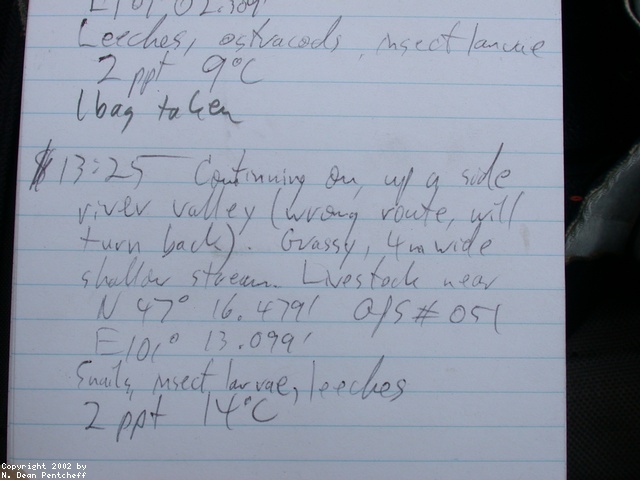 E101° 02.389'
Leeches, ostracods, insect larvae
2 ppt 9°C
1 bag taken
13:25 Continuing on, up a side
river valley (wrong route, will
turn back). Grassy, 4m wide
shallow stream. Livestock near
N 47° 16.479' GPS # 051
E101° 13.099'
Snails, insect larvae, leeches
2 ppt 14°C
Copyright 2002 by
N. Dean Pentcheff